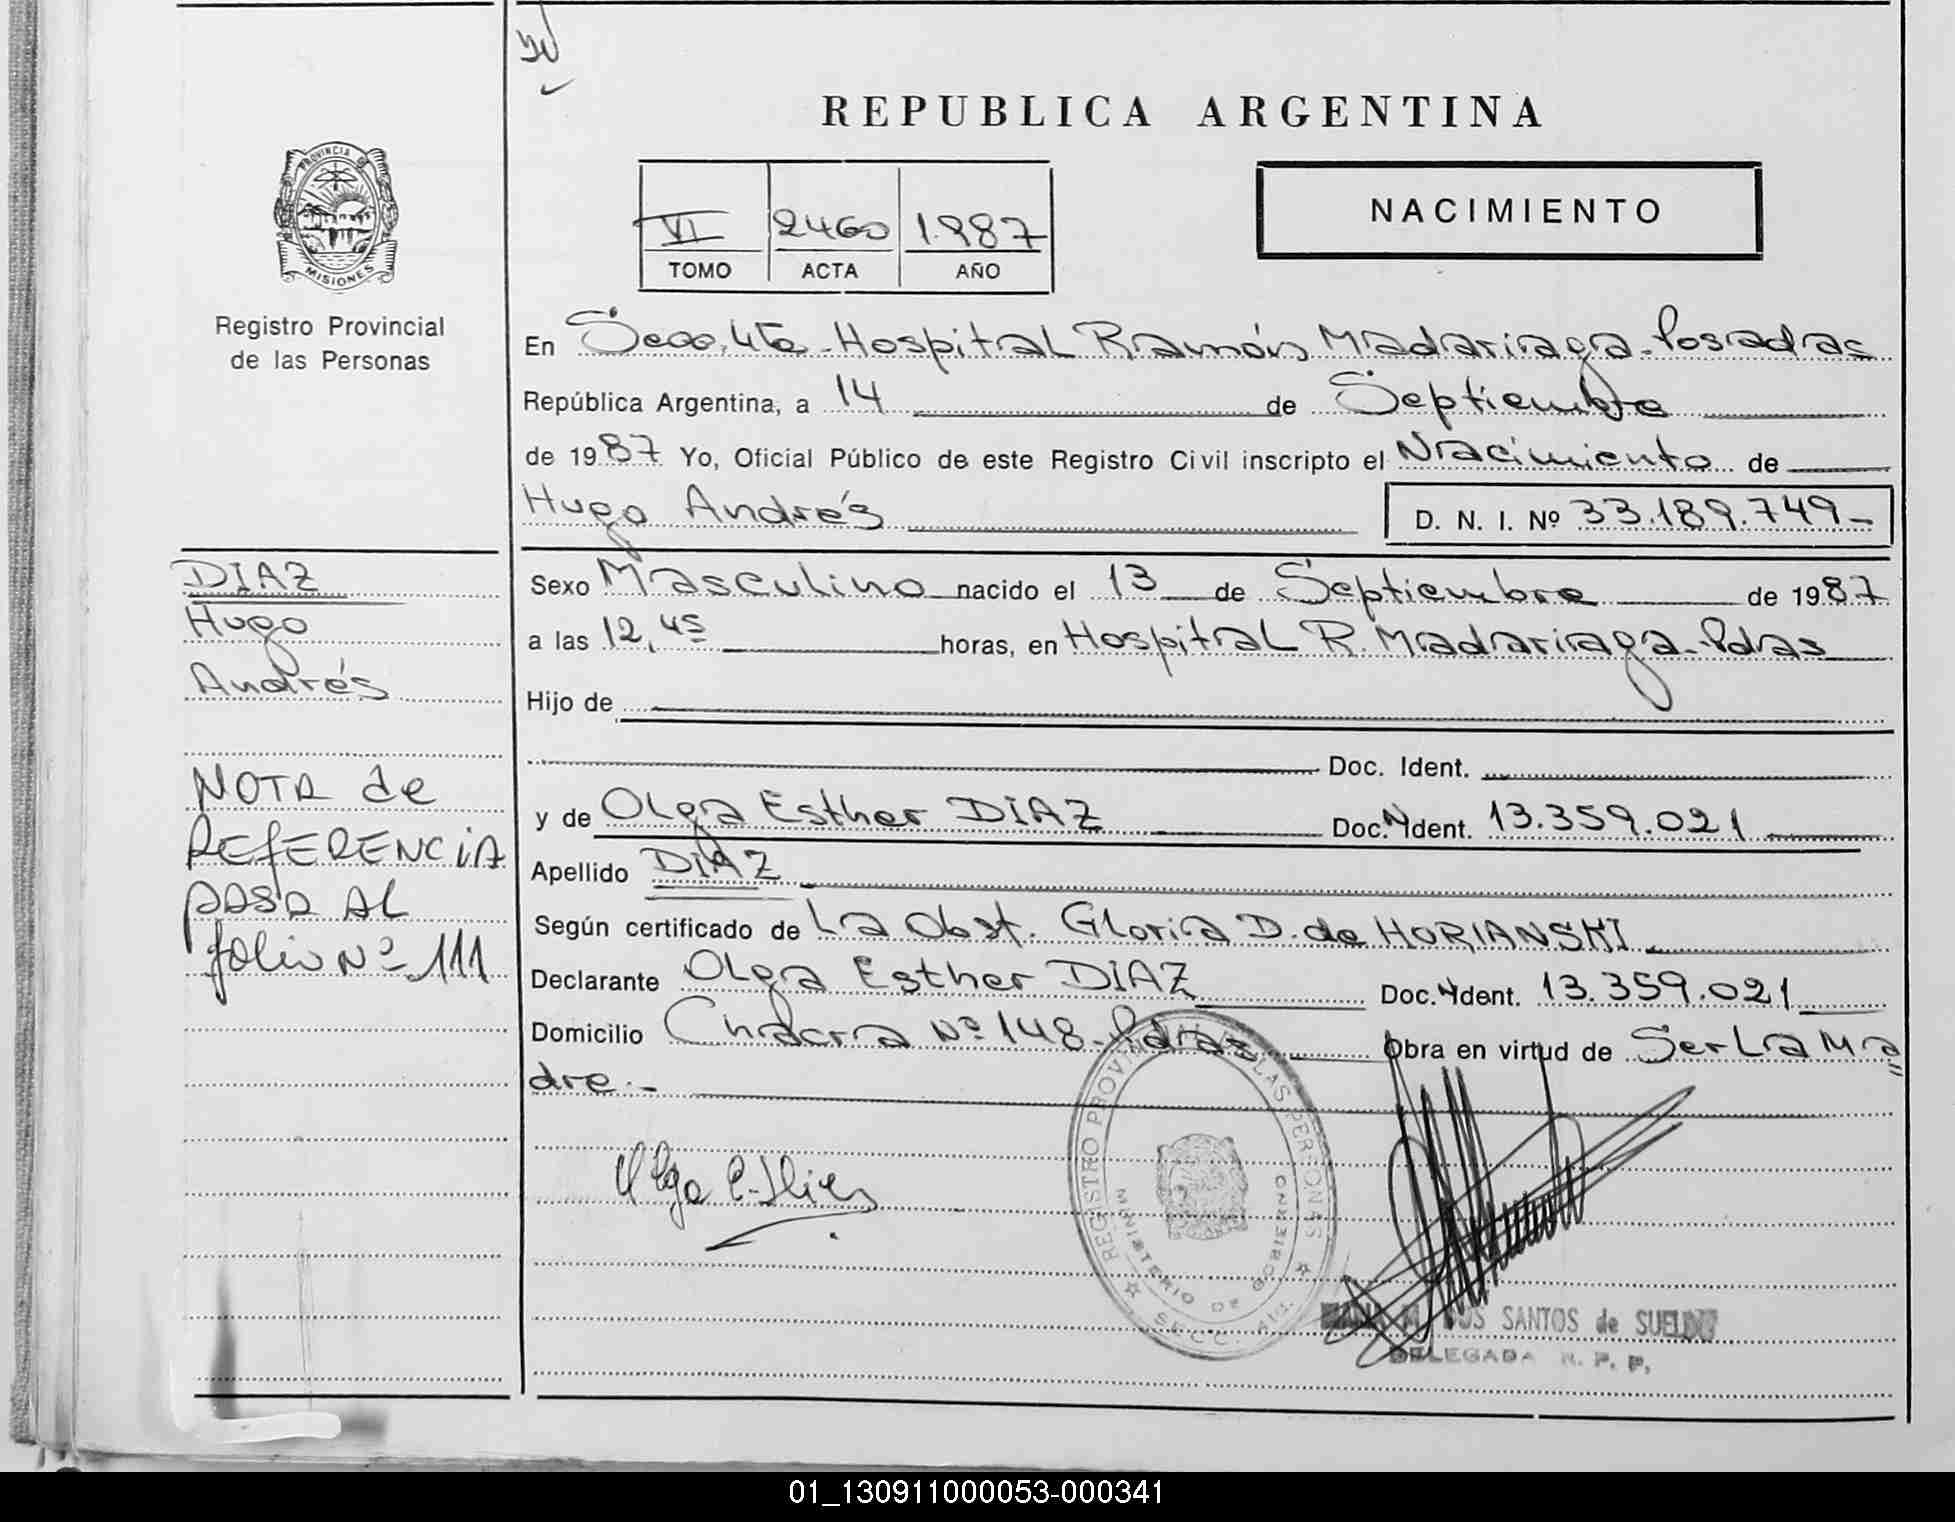 REPUBLICA ARGENTINA
PROVINCIA DE
MISIONES
Registro Provincial
de las Personas
VI 2460 1.987
TOMO ACTA AÑO
NACIMIENTO
En Secc. 4ta - Hospital Ramón Madariaga - Posadas
República Argentina, a 14 de Septiembre
de 1987 Yo, Oficial Público de este Registro Civil inscripto el Nacimiento de
Hugo Andrés D. N. I. Nº 33.189.749-
DIAZ
Hugo
Andrés
NOTA de
REFERENCIA
PASA AL
folio Nº 111
Sexo Masculino nacido el 13 de Septiembre de 1987
a las 12,45 horas, en Hospital R. Madariaga - Pdas
Hijo de
Doc. Ident.
y de Olga Esther DIAZ Doc. N Ident. 13.359.021
Apellido DIAZ
Según certificado de La Obst. Gloria D. de HORIANSKI
Declarante Olga Esther DIAZ Doc. N Ident. 13.359.021
Domicilio Chacra Nº 148 - Pdas Obra en virtud de Ser La Ma
dre.-
Olga E. Diaz
REGISTRO PROVINCIAL DE LAS PERSONAS
MINISTERIO DE GOBIERNO
SECC.
M. DOS SANTOS de SUELDO
DELEGADA R. P. P.
01_130911000053-000341